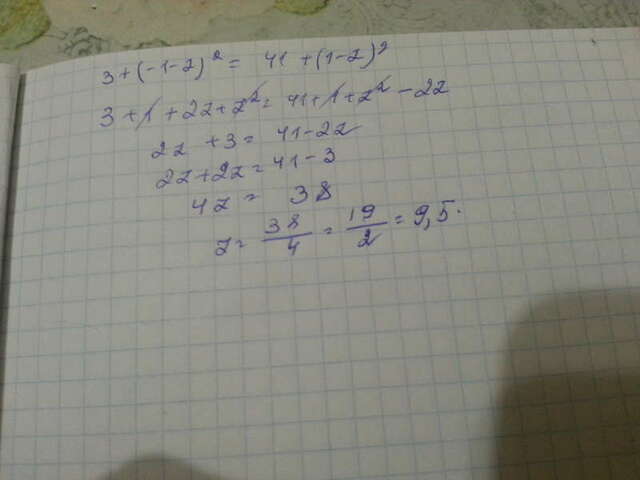 3+(-1-z)² = 41+(1-z)²
3+1+2z+z²=41+1+z²-2z
2z+3=41-2z
2z+2z=41-3
4z = 38
z= 38/4 = 19/2 = 9,5.